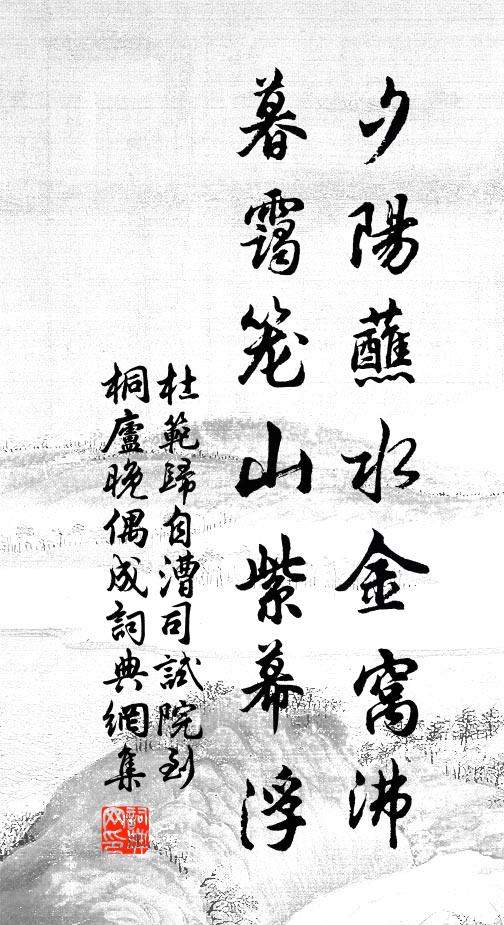 夕陽蘸水金窩沸
暮靄笼山紫幕浮
杜範歸自漕司試院到
桐廬晚偶成詞典網集